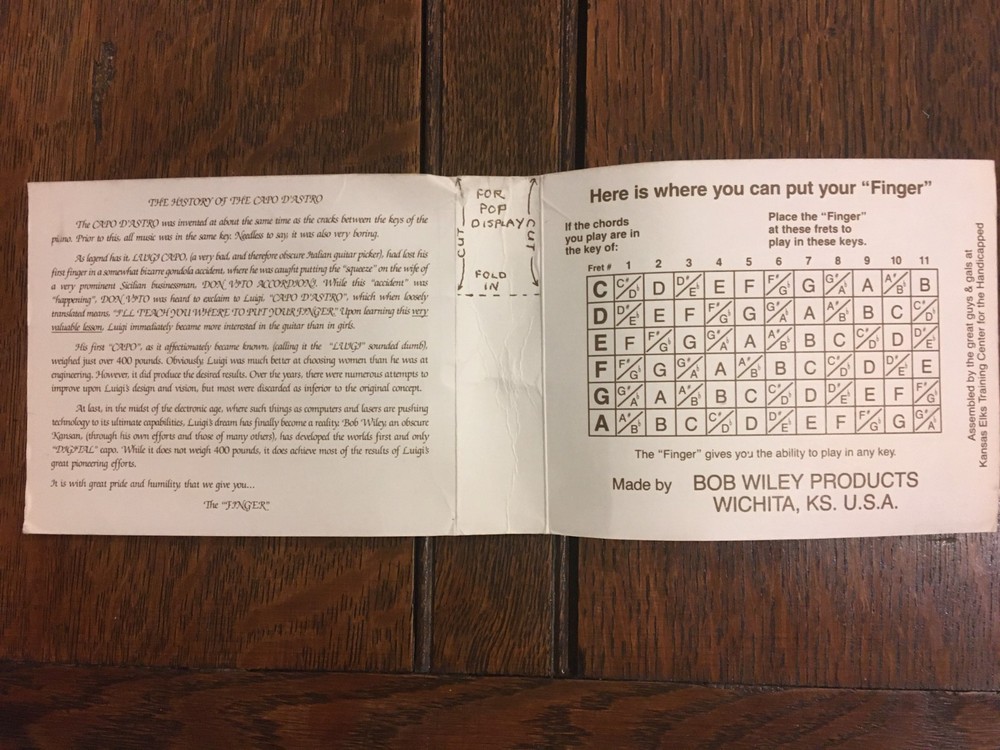 THE HISTORY OF THE CAPO D'ASTRO
The CAPO D'ASTRO was invented at about the same time as the cracks between the keys of the
piano. Prior to this, all music was in the same key. Needless to say, it was also very boring.
As legend has it, LUIGI CAPO, (a very bad, and therefore obscure Italian guitar picker), had lost his
first finger in a somewhat bizarre gondola accident, where he was caught putting the "squeeze" on the wife of
a very prominent Sicilian businessman, DON VITO ACCORDIONI. While this "accident" was
"happening", DON VITO was heard to exclaim to Luigi, "CAPO D'ASTRO", which when loosely
translated means, "I'LL TEACH YOU WHERE TO PUT YOUR FINGER." Upon learning this very
valuable lesson, Luigi immediately became more interested in the guitar than in girls.
His first "CAPO", as it affectionately became known, (calling it the "LUIGI" sounded dumb),
weighed just over 400 pounds. Obviously, Luigi was much better at choosing women than he was at
engineering. However, it did produce the desired results. Over the years, there were numerous attempts to
improve upon Luigi's design and vision, but most were discarded as inferior to the original concept.
At last, in the midst of the electronic age, where such things as computers and lasers are pushing
technology to its ultimate capabilities, Luigi's dream has finally become a reality. Bob Wiley, an obscure
Kansan, (through his own efforts and those of many others), has developed the worlds first and only
"DIGITAL" capo. While it does not weigh 400 pounds, it does achieve most of the results of Luigi's
great pioneering efforts.
It is with great pride and humility that we give you...
The "FINGER"
FOR
POP
DISPLAY
CUT
CUT
FOLD
IN
Here is where you can put your "Finger"
If the chords
you play are in
the key of:
Place the "Finger"
at these frets to
play in these keys.
Fret # 1 2 3 4 5 6 7 8 9 10 11
C C#/Db D D#/Eb E F F#/Gb G G#/Ab A A#/Bb B
D D#/Eb E F F#/Gb G G#/Ab A A#/Bb B C C#/Db
E F F#/Gb G G#/Ab A A#/Bb B C C#/Db D D#/Eb
F F#/Gb G G#/Ab A A#/Bb B C C#/Db D D#/Eb E
G G#/Ab A A#/Bb B C C#/Db D D#/Eb E F F#/Gb
A A#/Bb B C C#/Db D D#/Eb E F F#/Gb G G#/Ab
The "Finger" gives you the ability to play in any key.
Made by BOB WILEY PRODUCTS
WICHITA, KS. U.S.A.
Assembled by the great guys & gals at
Kansas Elks Training Center for the Handicapped